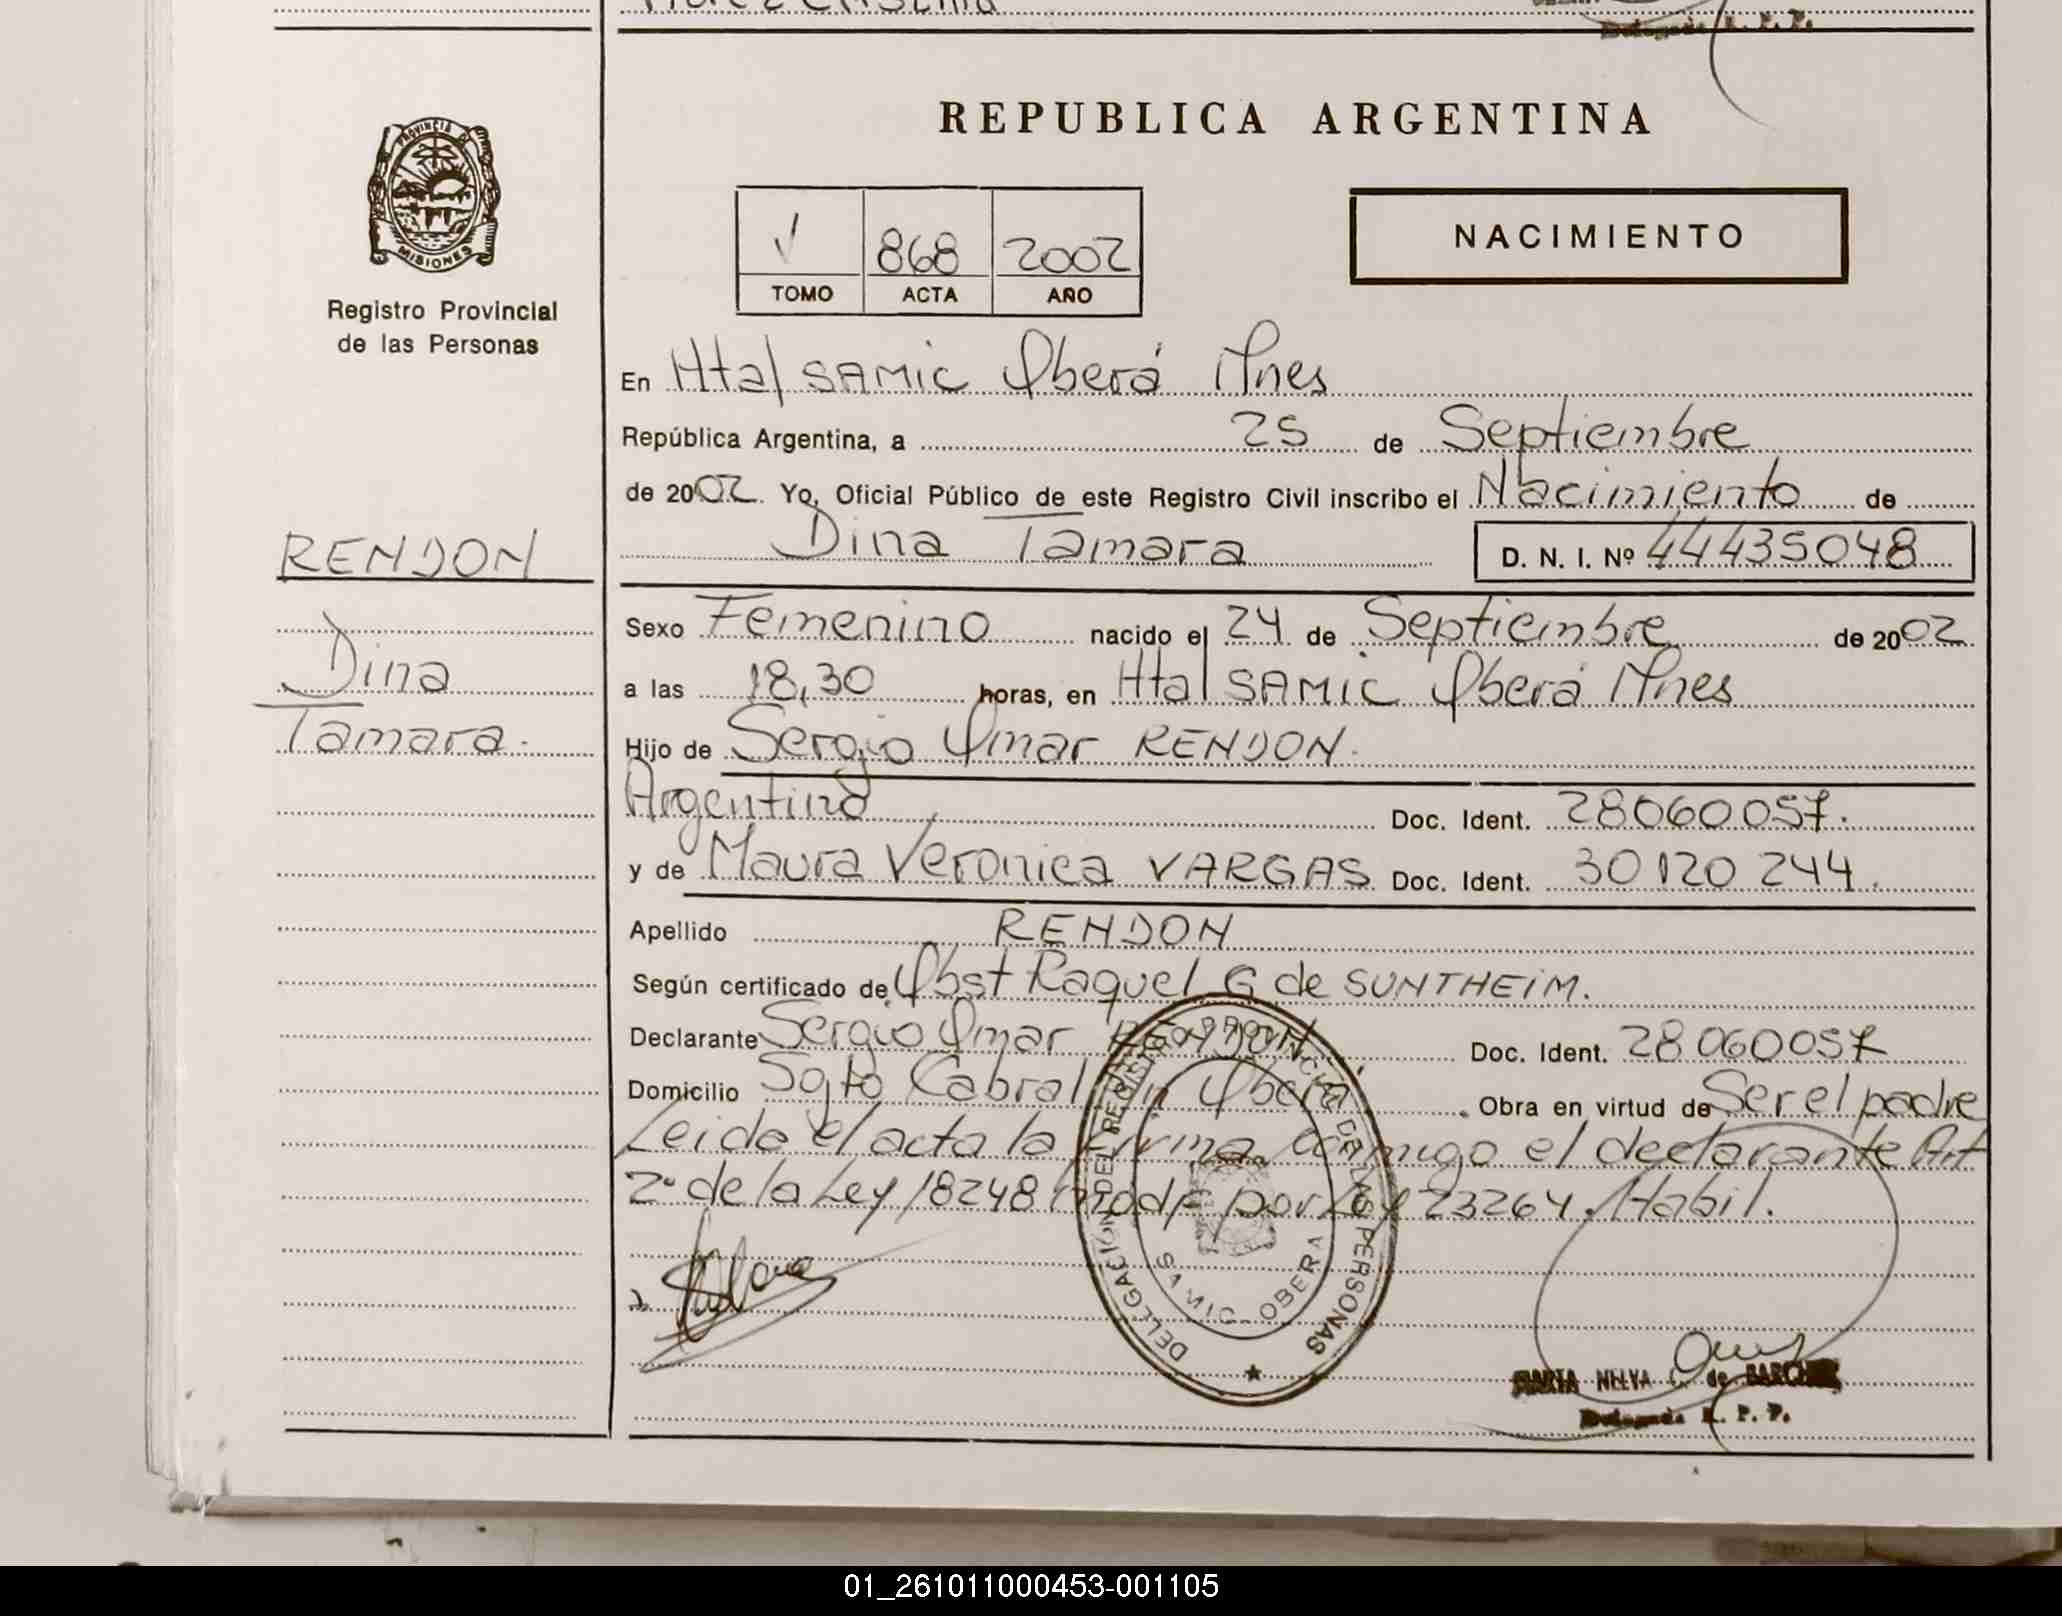 Delegada R. P. P.
REPUBLICA ARGENTINA
PROVINCIA DE
MISIONES
Registro Provincial
de las Personas
868 2002
TOMO ACTA AÑO
NACIMIENTO
En Htal SAMIC Oberá Mnes
República Argentina, a 25 de Septiembre
de 2002. Yo, Oficial Público de este Registro Civil inscribo el Nacimiento de
Dina Tamara D. N. I. Nº 44435048
RENDON
Dina
Tamara.
Sexo Femenino nacido el 24 de Septiembre de 2002
a las 18,30 horas, en Htal SAMIC Oberá Mnes
Hijo de Sergio Omar RENDON.
Argentino Doc. Ident. 28060057.
y de Maura Veronica VARGAS Doc. Ident. 30120244.
Apellido RENDON
Según certificado de Obst Raquel G de SUNTHEIM.
Declarante Sergio Omar RENDON Doc. Ident. 28060057
Domicilio Sgto Cabral Oberá. Obra en virtud de Ser el padre
Leida el acta la firma conmigo el declarante Art
2º de la Ley 18248 modf por Ley 23264. Habil.
DELEGACION DEL REGISTRO PROVINCIAL DE LAS PERSONAS
SAMIC - OBERA
MARTA NELVA de
Delegada R. P. P.
01_261011000453-001105